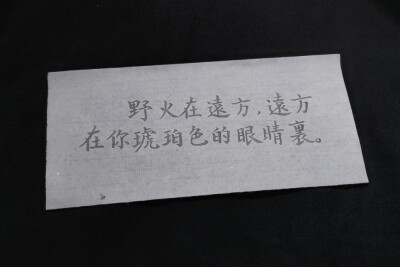 野火在遠方,遠方
在你琥珀色的眼睛裏。